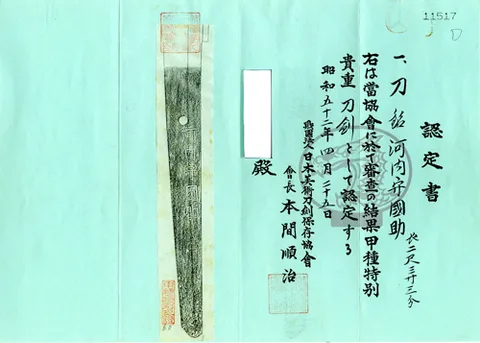 11517
認定書
一、刀 銘 河内守國助
長二尺三寸三分
右は當協會に於て審査の結果甲種特別
貴重刀剣として認定する
昭和五十二年四月二十五日
財團法人日本美術刀剣保存協會
會長 本間順治
殿